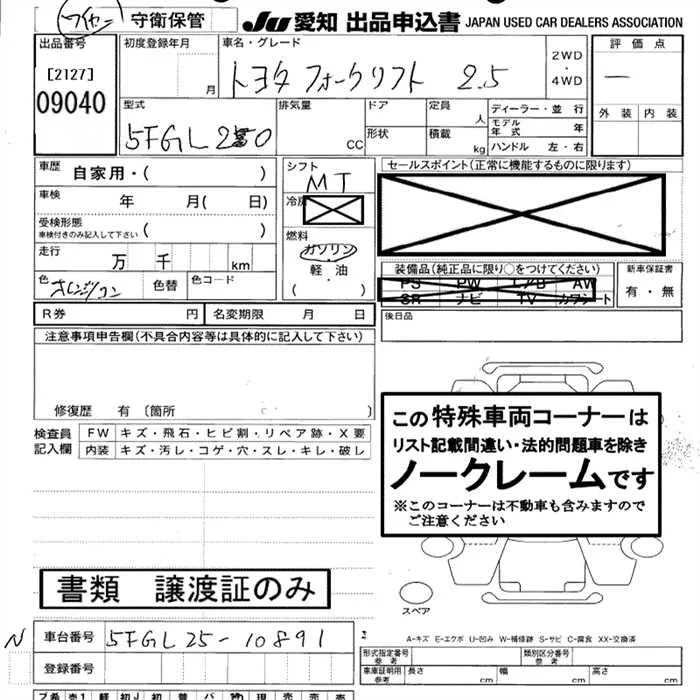 守衛保管
JU 愛知 出品申込書 JAPAN USED CAR DEALERS ASSOCIATION
出品番号
[2127]
09040
初度登録年月
月
車名・グレード
トヨタ フォークリフト 2.5
2WD
・
4WD
評価点
ー
外装 内装
型式
5FGL
排気量
CC
ドア
形状
定員
人
積載
kg
ディーラー・並行
モデル年式 年
ハンドル 左・右
車歴
自家用・( )
車検
年 月( 日)
受検形態
車検付きのみ記入して下さい ( )
走行
万 千 km
色
色替
色コード
シフト
MT
冷房
燃料
ガソリン
・
軽油
( )
セールスポイント(正常に機能するものに限ります)
装備品(純正品に限り○をつけてください)
PS PW エアB AW
SR ナビ TV カワシート
新車保証書
有・無
後日品
R券 円
名変期限 月 日
注意事項申告欄(不具合内容等は具体的に記入して下さい)
修復歴 有 〔箇所 〕
検査員
記入欄
FW キズ・飛石・ヒビ割・リペア跡・X要
内装 キズ・汚レ・コゲ・穴・スレ・キレ・破レ
この特殊車両コーナーは
リスト記載間違い・法的問題車を除き
ノークレームです
※このコーナーは不動車も含みますので
ご注意ください
書類 譲渡証のみ
スペア
N 車台番号 5FGL25-10891
登録番号
A-キズ E-エクボ U-凹み W-補修跡 S-サビ C-腐食 XX-交換済
形式指定番号
参考
類別区分番号
参考
車庫証明用
参考
長さ cm 幅 cm 高さ cm